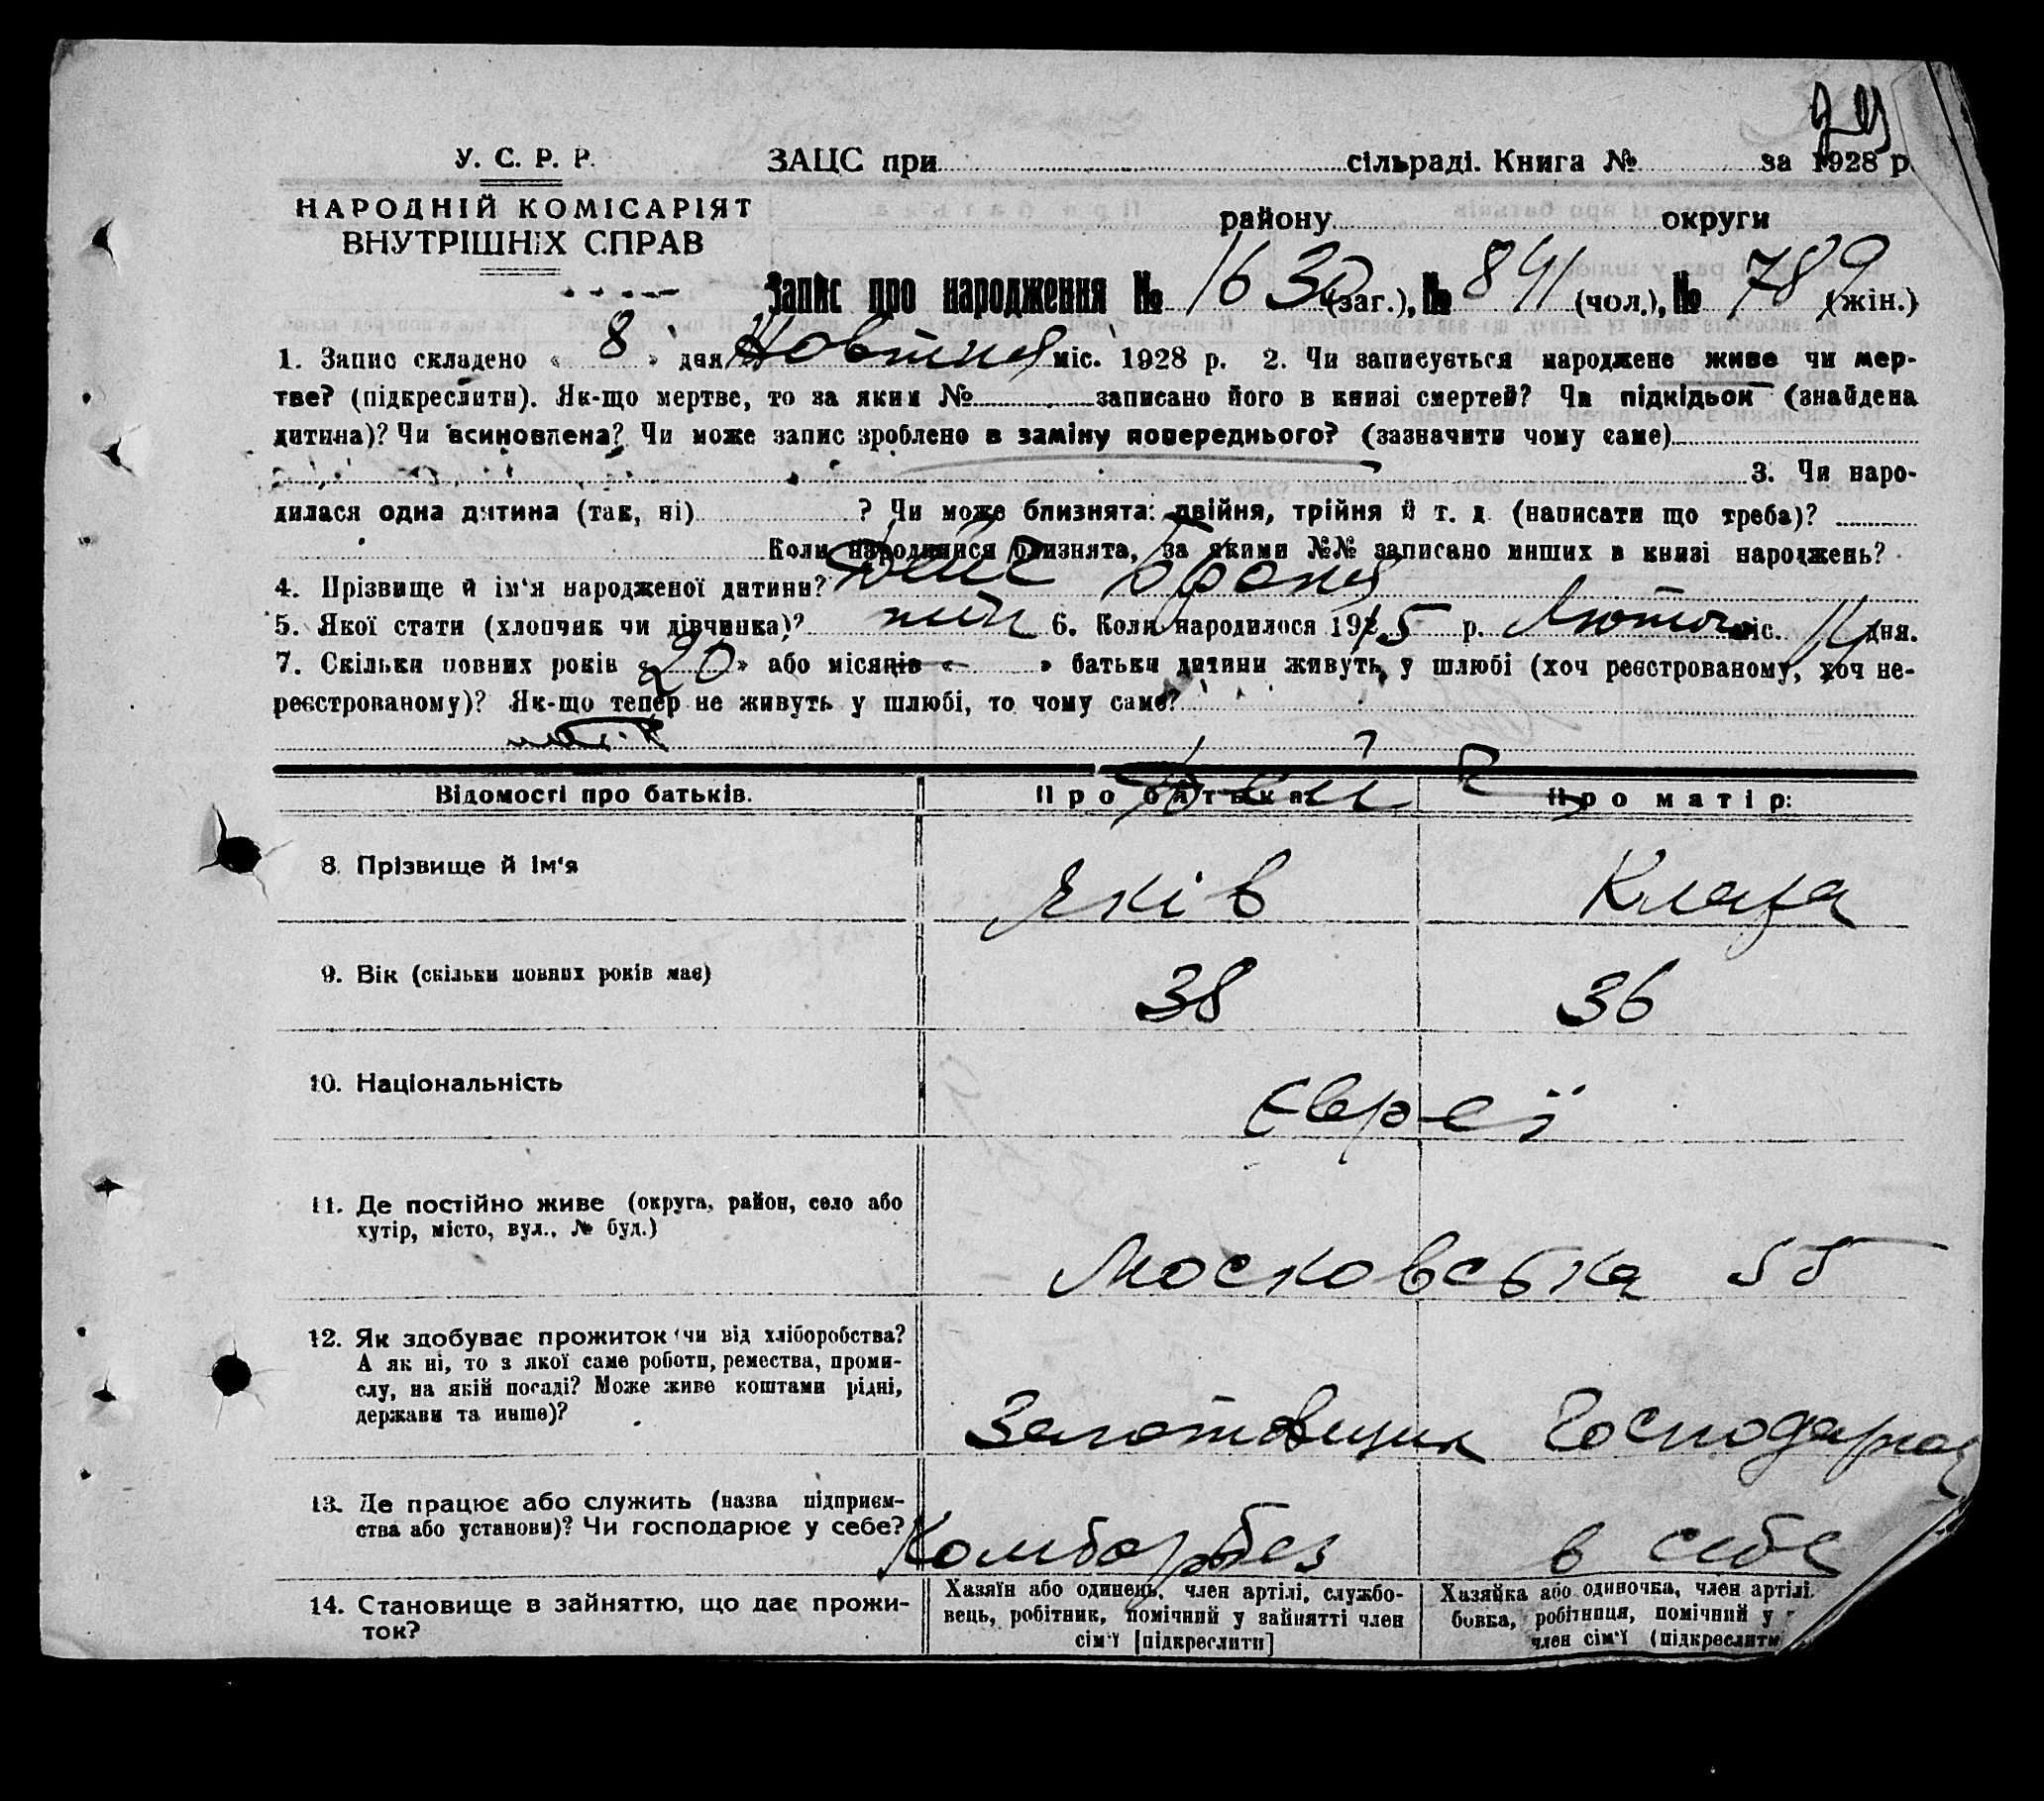 У. С. Р. Р.
ЗАЦС при сільраді. Книга № за 1928 р.
НАРОДНІЙ КОМІСАРІЯТ
ВНУТРІШНІХ СПРАВ
району округи
Запис про народження № 1630 (заг.), № 841 (чол.), № 789 (жін.)
1. Запис складено « 8 » дня Жовтня міс. 1928 р. 2. Чи записується народжене живе чи мер-
тве? (підкреслити). Як-що мертве, то за яким № записано його в книзі смертей? Чи підкідьок (знайдена
дитина)? Чи всиновлена? Чи може запис зроблено в заміну попереднього? (зазначити чому саме)
3. Чи наро-
дилася одна дитина (так, ні) ? Чи може близнята: двійня, трійня й т. д. (написати що треба)?
Коли народилися близнята, за якими №№ записано инших в книзі народжень?
4. Прізвище й ім'я народженої дитини?
5. Якої стати (хлопчик чи дівчинка)? 6. Коли народилося 1915 р. Лютого міс. 11 дня.
7. Скільки повних років « 20 » або місяців « » батьки дитини живуть у шлюбі (хоч реєстрованому, хоч не-
реєстрованому)? Як-що тепер не живуть у шлюбі, то чому саме?
Відомості про батьків. Про батька: Про матір:
8. Прізвище й ім'я Яків Клара
9. Вік (скільки повних років має) 38 36
10. Національність Євреї
11. Де постійно живе (округа, район, село або
хутір, місто, вул., № буд.)
Московська 55
12. Як здобуває прожиток (чи від хліборобства?
А як ні, то з якої саме роботи, ремества, проми-
слу, на якій посаді? Може живе коштами рідні,
держави та инше)?
Господарка
13. Де працює або служить (назва підприєм-
ства або установи)? Чи господарює у себе?
Комборбез в себе
14. Становище в зайняттю, що дає прожи-
ток?
Хазяїн або одинець, член артілі, службо-
вець, робітник, помічний у зайнятті член
сім'ї [підкреслити]
Хазяйка або одиночка, член артілі,
бовка, робітниця, помічний у
член сім'ї (підкреслити